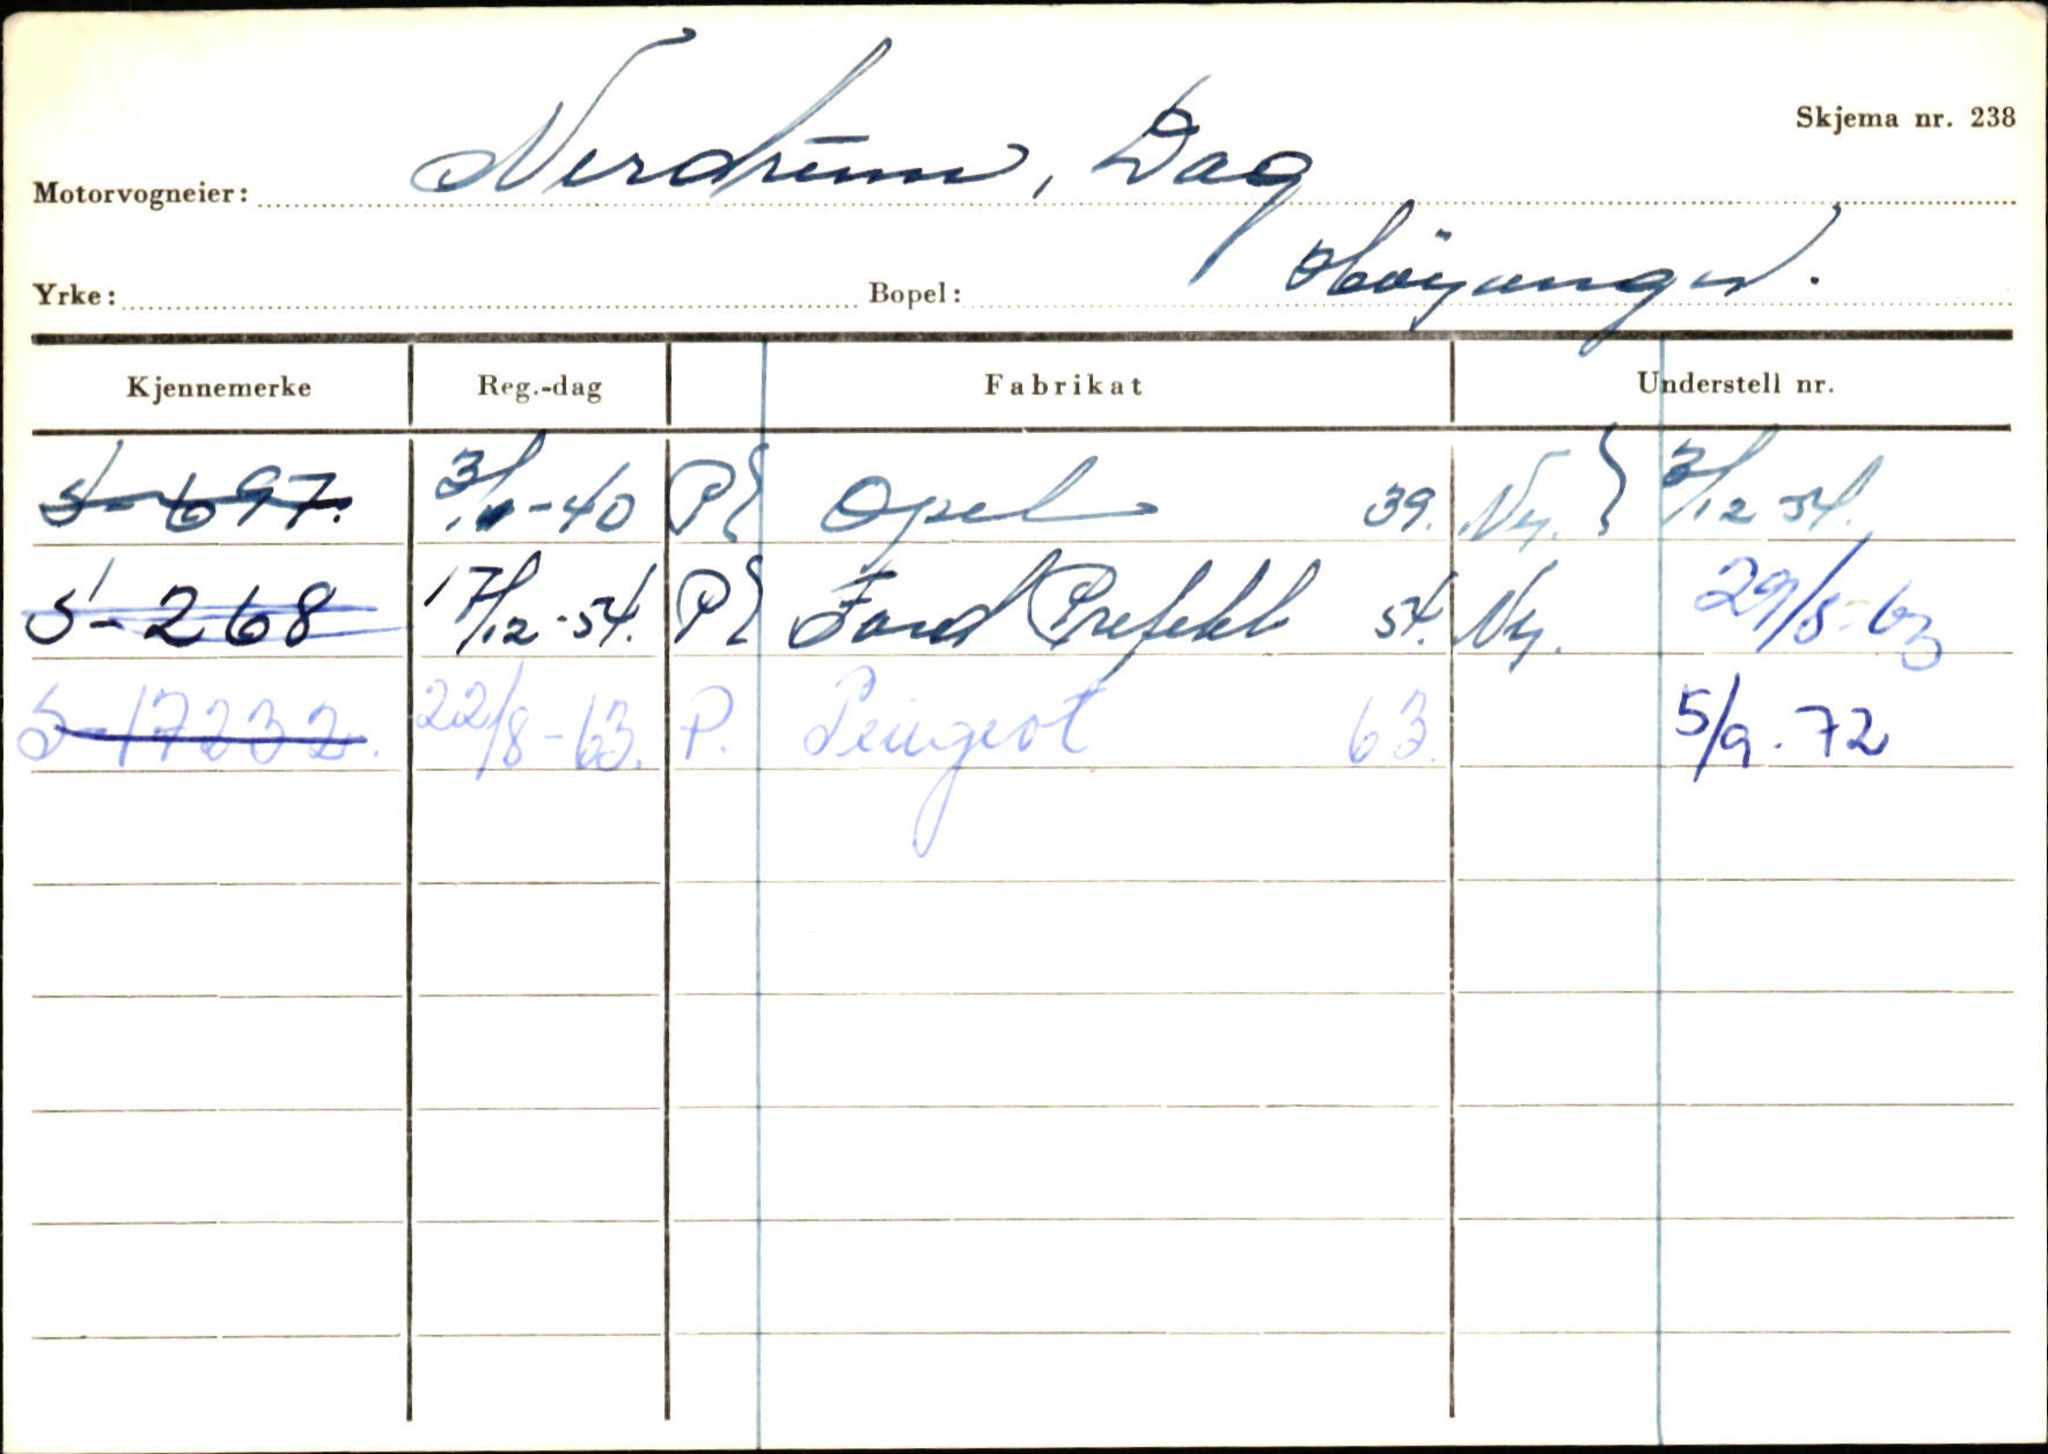 Skjema nr. 238
Motorvogneier: Nerdrum, Dag
Yrke: Bopel: Höyanger.
Kjennemerke Reg.-dag Fabrikat Understell nr.
S-697. -40 P Opel 39. Ny. 3/12-54.
S-268 17/12-54. P Ford Prefekt 54. Ny. 29/8-63
S-17232. 22/8-63. P. Peugeot 63. 5/9.72